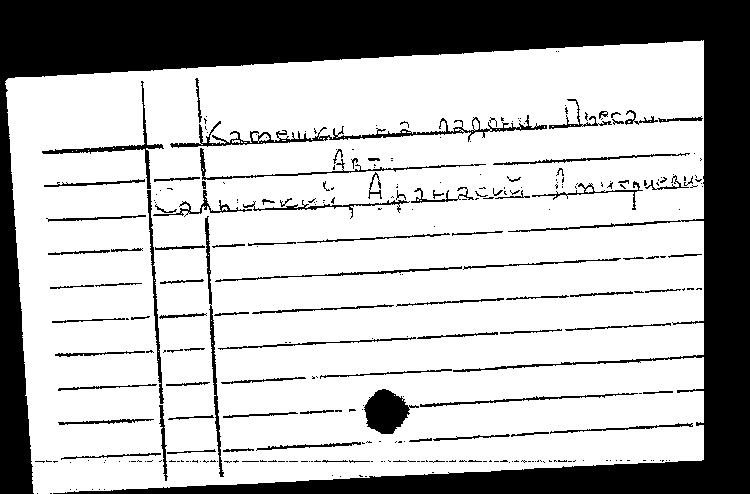 Камешки на ладони. Пьеса.
Авт.:
Салынский, Афанасий Дмитриевич